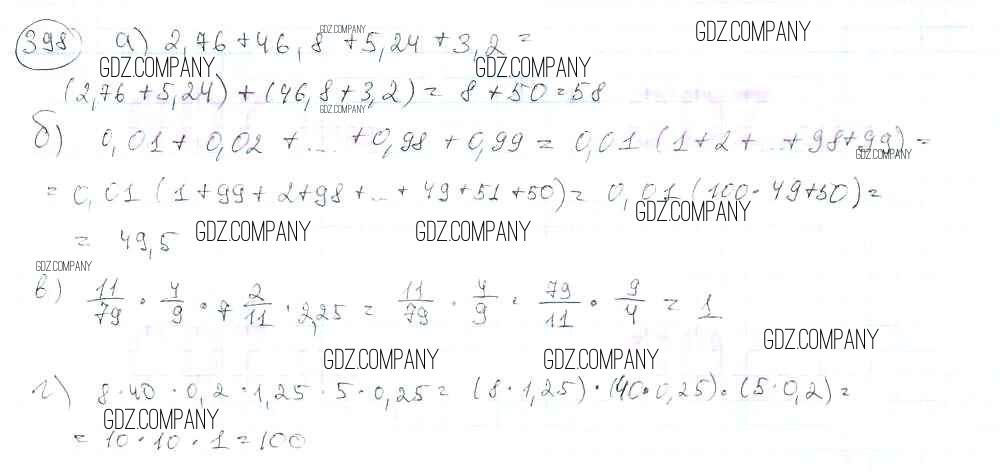 398 а) 2,76 + 46,8 + 5,24 + 3,2 =
(2,76 + 5,24) + (46,8 + 3,2) = 8 + 50 = 58
б) 0,01 + 0,02 + ... + 0,98 + 0,99 = 0,01 (1 + 2 + ... + 98 + 99) =
= 0,01 (1 + 99 + 2 + 98 + ... + 49 + 51 + 50) = 0,01 (100 · 49 + 50) =
= 49,5
в) 11/79 · 4/9 · 7 2/11 · 2,25 = 11/79 · 4/9 · 79/11 · 9/4 = 1
г) 8 · 40 · 0,2 · 1,25 · 5 · 0,25 = (8 · 1,25) · (40 · 0,25) · (5 · 0,2) =
= 10 · 10 · 1 = 100
GDZ.COMPANY
GDZ.COMPANY
GDZ.COMPANY
GDZ.COMPANY
GDZ.COMPANY
GDZ.COMPANY
GDZ.COMPANY
GDZ.COMPANY
GDZ.COMPANY
GDZ.COMPANY
GDZ.COMPANY
GDZ.COMPANY
GDZ.COMPANY
GDZ.COMPANY